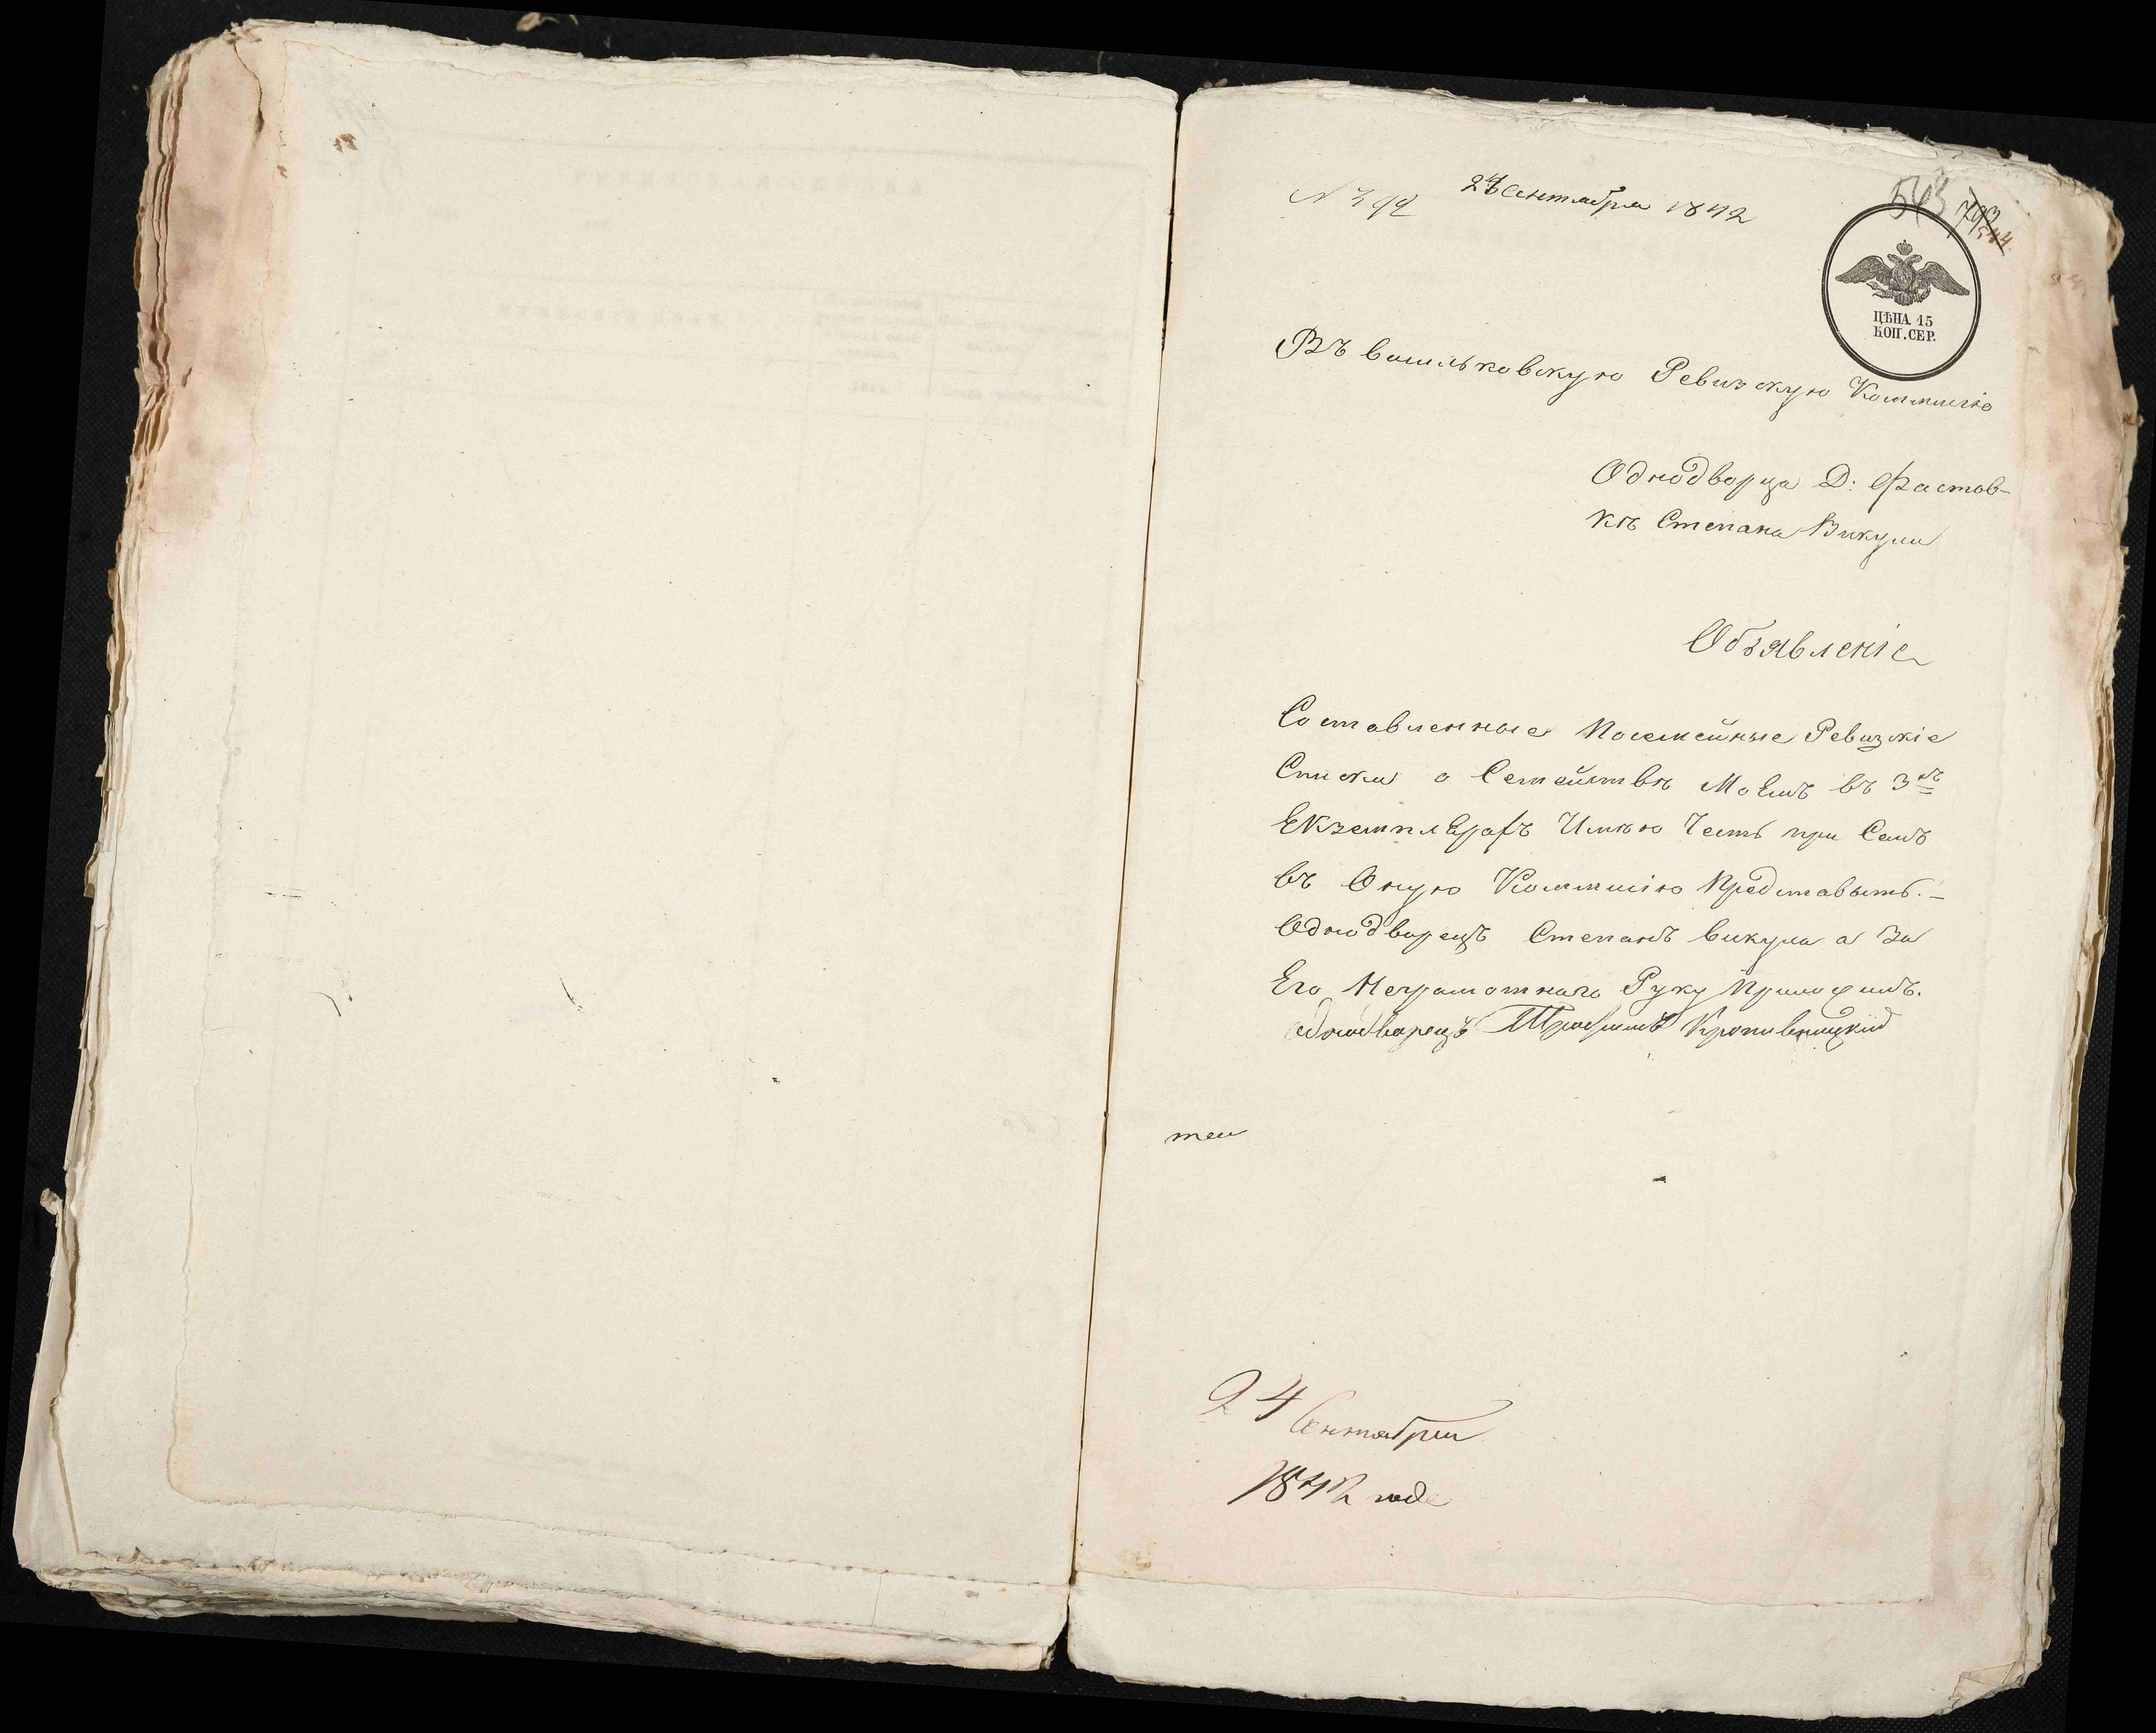 N 392 24 Сентября 1842
543
793
ЦѢНА 15
КОП. СЕР.
Въ васильковскую Ревизскую Коммисію
Однодворца Д: Фастов-
кѣ Степана Викулы
Объявленіе
Составленные Посемейные Ревизскіе
Списки о Семействѣ Моемъ въ 3хъ
Екземплерахъ Имѣю Честь при Семъ
въ Оную Коммисію Представыть. —
Однодворецъ Степанъ викула а За
Его Неграмотнаго Руку Приложилъ.
однодворецъ Кропивницкій
24 Сентября
1842 года